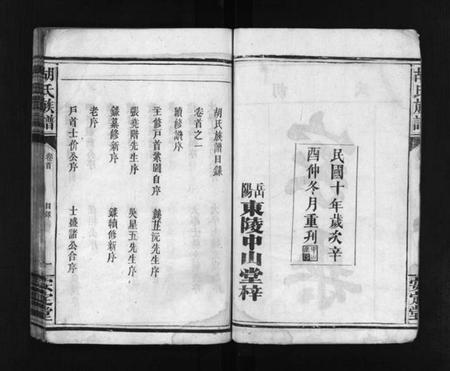 民國十年歲次辛
酉仲冬月重刋
岳陽東陵中山堂梓
胡氏族譜
安定堂
胡氏族譜目錄
卷首之一
續修譜序
主修戸首紫園自序
張英階先生序
吳星五先生序
錄續修新序
老序
戸首士价公序
士盛諸公合序
胡氏族譜
卷首
目錄
安定堂